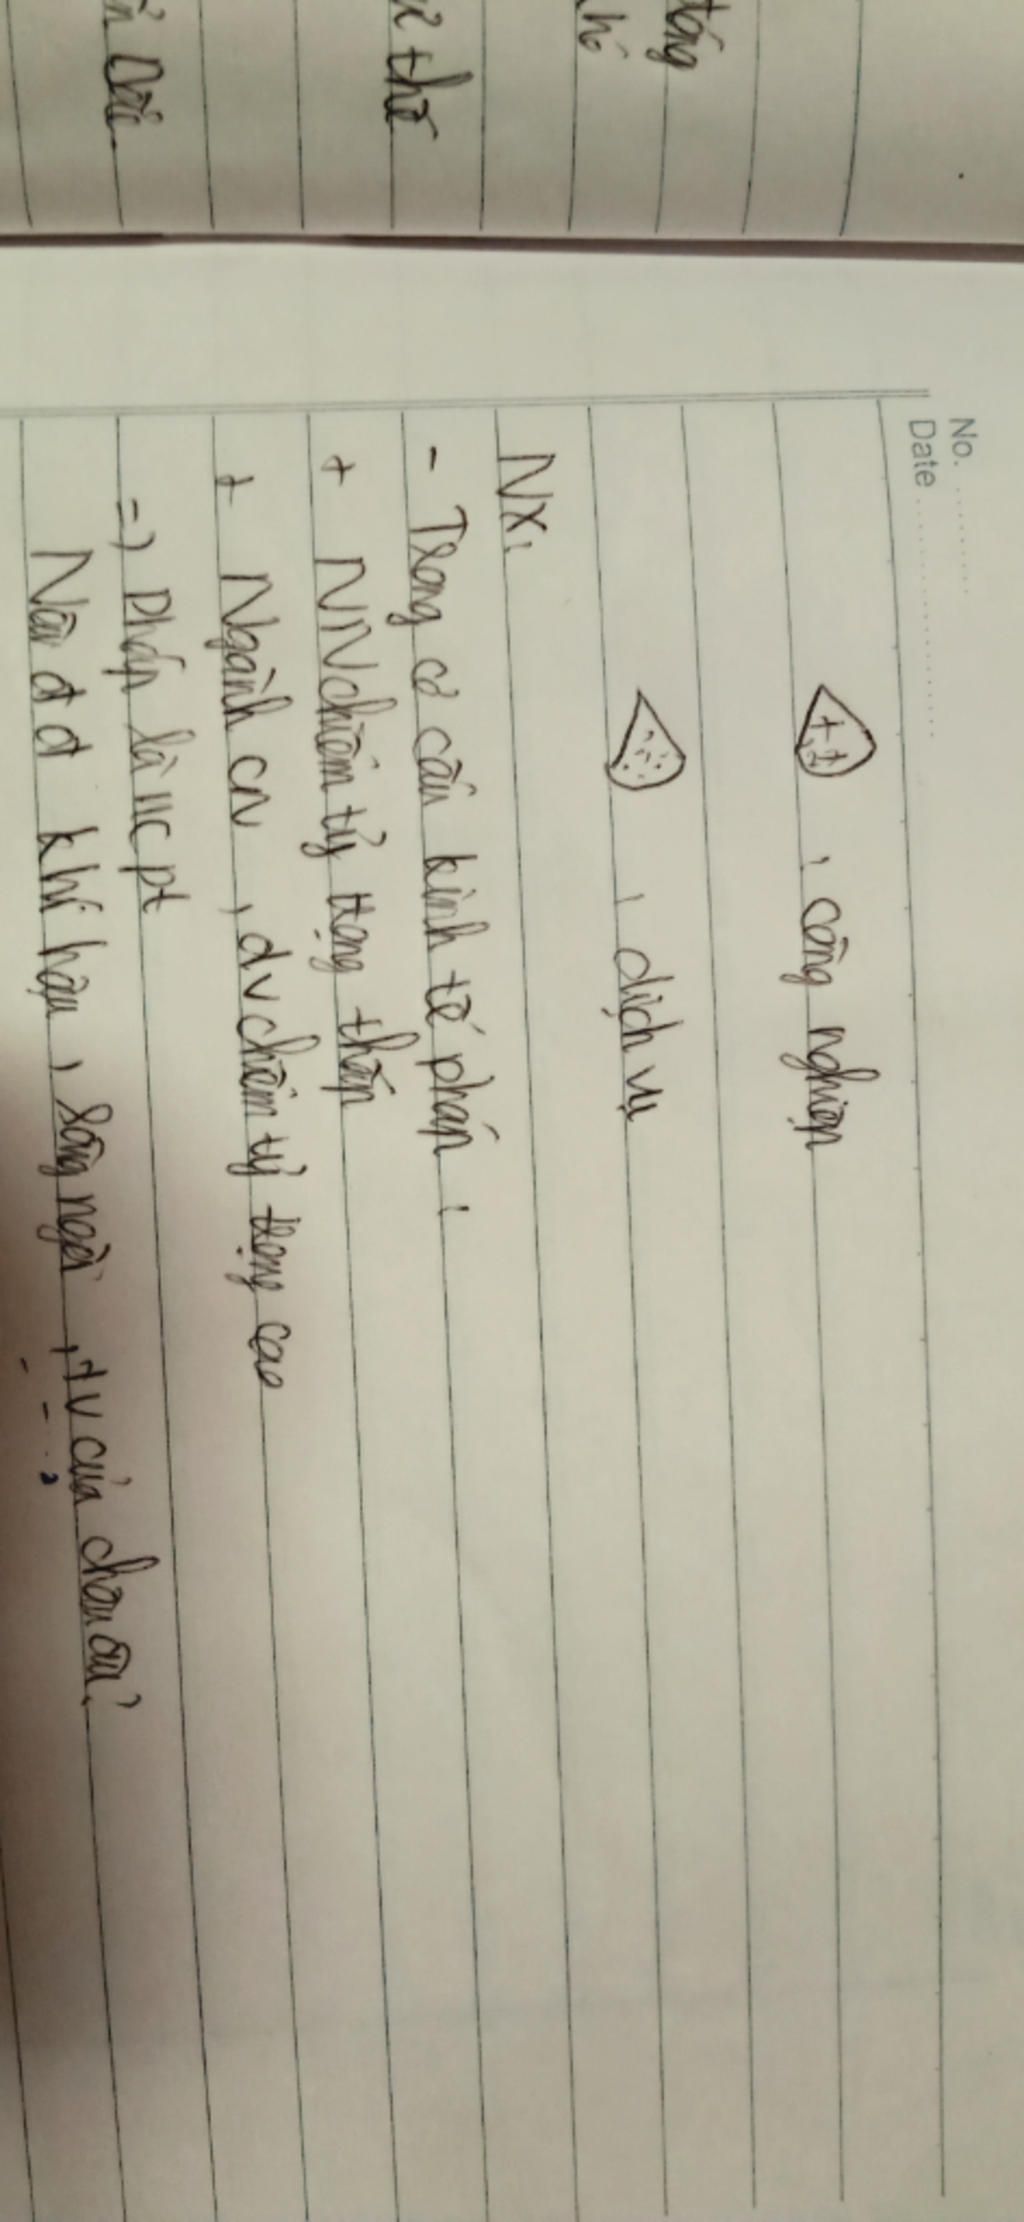 No.
Date
: công nghiệp
: dịch vụ
NX:
- Trong cơ cấu kinh tế pháp :
+ NN chiếm tỷ trọng thấp
+ Ngành cn , dv chiếm tỷ trọng cao
=) Pháp là nc pt
Nêu đ đ khí hậu , sông ngòi , tv của châu âu?
tống
hó
thơ